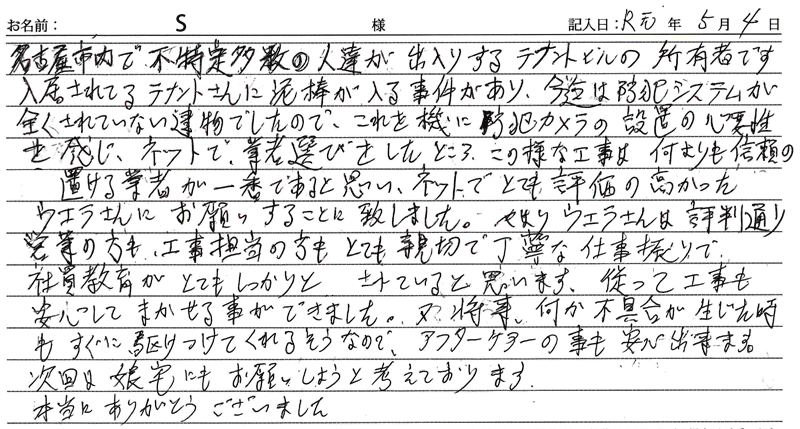 お名前： S 様 記入日：R元年 5月 4日
名古屋市内で不特定多数の人達が出入りするテナントビルの所有者です
入居されてるテナントさんに泥棒が入る事件があり、今迄は防犯システムが
全くされていない建物でしたので、これを機に防犯カメラの設置の必要性
を感じ、ネットで、業者選びをしたところ、この様な工事は何よりも信頼の
置ける業者が一番であると思い、ネットでとても評価の高かった
ウエラさんにお願いすることに致しました。やはりウエラさんは評判通り
営業の方も、工事担当の方もとても親切で丁寧な仕事振りで
社員教育がとてもしっかりと されていると思います、従って工事も
安心してまかせる事ができました。又、将来、何か不具合が生じた時
もすぐに駆けつけてくれるそうなので、アフターケアーの事も安心出来ます。
次回は娘宅にもお願いしようと考えております。
本当にありがとうございました